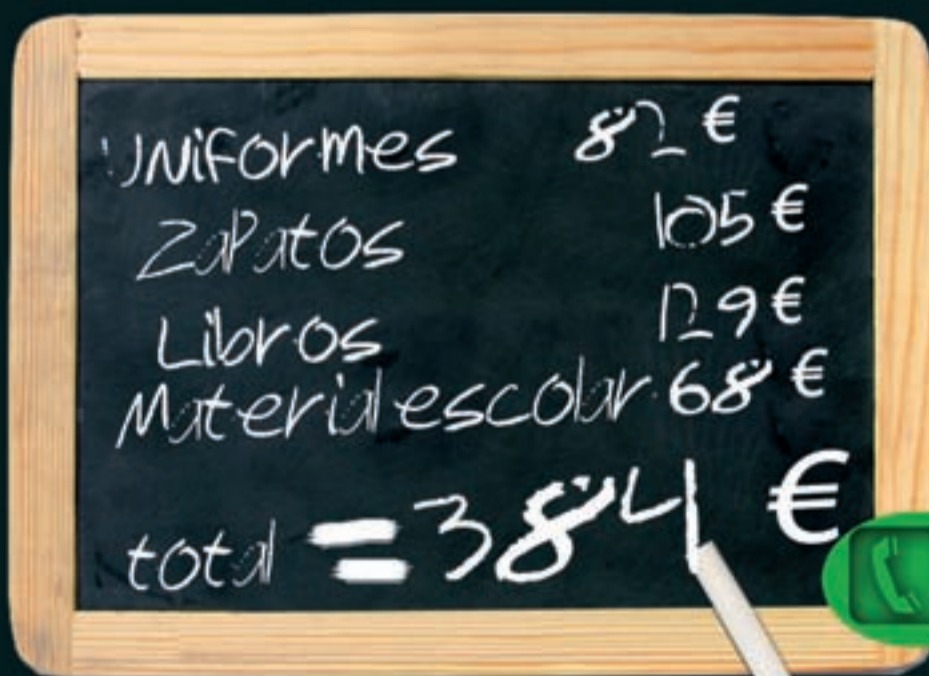 UNiFormes 82 €
ZaPatos 105 €
Libros 129 €
Material escolar 68 €
total = 384 €